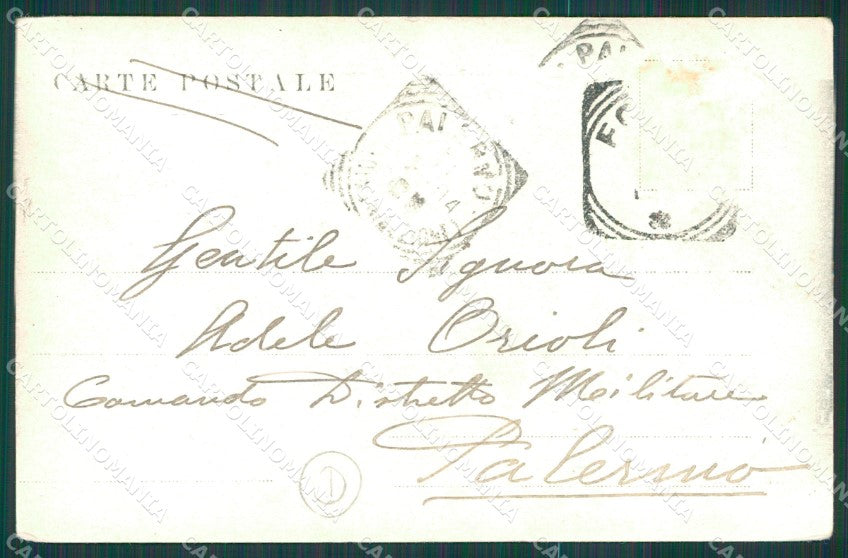 CARTE POSTALE
PAL
PAL
Gentile Signora
Adele Orioli
Comando Distretto Militare
Palermo
D
CARTOLINOMANIA